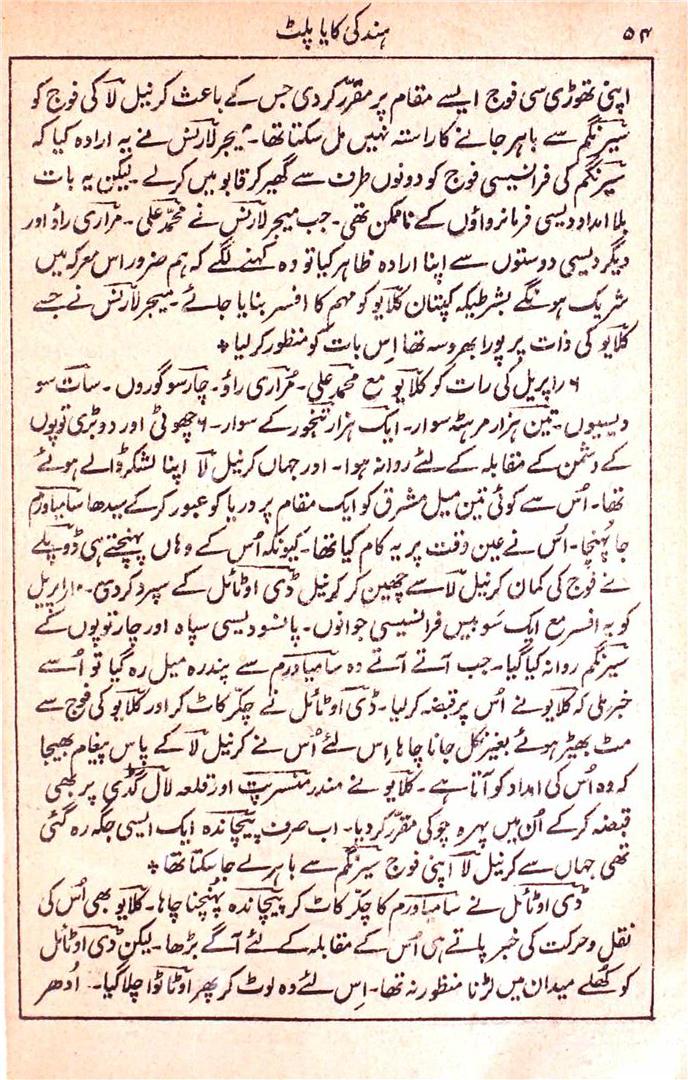 ۵۴
ہند کی کایا پلٹ
اپنی تھوڑی سی فوج ایسے مقام پر مقرّر کر دی جس کے باعث کرنیل لا کی فوج کو
سیرنگم سے باہر جانے کا راستہ نہیں مل سکتا تھا۔ میجر لارنس نے یہ ارادہ کیا کہ
سیرنگم کی فرانسیسی فوج کو دونوں طرف سے گھیر کر قابو میں کر لے۔ لیکن یہ بات
بلا امداد دیسی فرمانرواؤں کے ناممکن تھی۔ جب میجر لارنس نے محمّد علی۔ مُراری راؤ اور
دیگر دیسی دوستوں سے اپنا ارادہ ظاہر کیا تو وہ کہنے لگے کہ ہم ضرور اس معرکہ میں
شریک ہونگے بشرطیکہ کپتان کلایو کو مہم کا افسر بنایا جائے۔ میجر لارنس نے جسے
کلایو کی ذات پر پورا بھروسہ تھا اِس بات کو منظور کر لیا*
۶ اپریل کی رات کو کلایو مع محمد علی۔ مُراری راؤ۔ چار سو گوروں۔ سات سو
دیسیوں۔ تین ہزار مرہٹہ سوار۔ ایک ہزار تنجور کے سوار۔ ۶ چھوٹی اور دو بڑی توپوں
کے دشمن کے مقابلہ کے لئے روانہ ہوا۔ اور جہاں کرنیل لا اپنا لشکر ڈالے ہوئے
تھا۔ اُس سے کوئی تین میل مشرق کو ایک مقام پر دریا کو عبور کر کے سیدھا سامیاورم
جا پُہنچا۔ اُس نے عین وقت پر یہ کام کیا تھا۔ کیونکہ اُس کے وہاں پہنچتے ہی ڈوپلے
نے فوج کی کمان کرنیل لا سے چھین کر کرنیل ڈی اوٹائل کے سپرد کر دی۔ ۱۰ اپریل
کو یہ افسر مع ایک سَو بیس فرانسیسی جوانوں۔ پانسو دیسی سپاہ اور چار توپوں کے
سیرنگم روانہ کیا گیا۔ جب آتے آتے وہ سامیاورم سے پندرہ میل رہ گیا تو اُسے
خبر ملی کہ کلایو نے اُس پر قبضہ کر لیا۔ ڈی اوٹائل نے چکّر کاٹ کر اور کلایو کی فوج سے
مٹ بھیڑ ہوئے بغیر نکل جانا چاہا اِس لئے اُس نے کرنیل لا کے پاس پیغام بھیجا
کہ وہ اُس کی امداد کو آتا ہے۔ کلایو نے مندر منسرپت اور قلعہ لال گڈی پر بھی
قبضہ کر کے اُن میں پہرہ چوکی مقرّر کر دیا۔ اب صرف پیچاندہ ایک ایسی جگہ رہ گئی
تھی جہاں سے کرنیل لا اپنی فوج سیرنگم سے باہر لے جا سکتا تھا*
ڈی اوٹائل نے سامیاورم کا چکّر کاٹ کر پیچاندہ پُہنچنا چاہا۔ کلایو بھی اُس کی
نقل و حرکت کی خبر پاتے ہی اُس کے مقابلہ کے لئے آگے بڑھا۔ لیکن ڈی اوٹائل
کو کُھلے میدان میں لڑنا منظور نہ تھا۔ اِس لئے وہ لوٹ کر پھر اوٹاٹوا چلا گیا۔ اُدھر